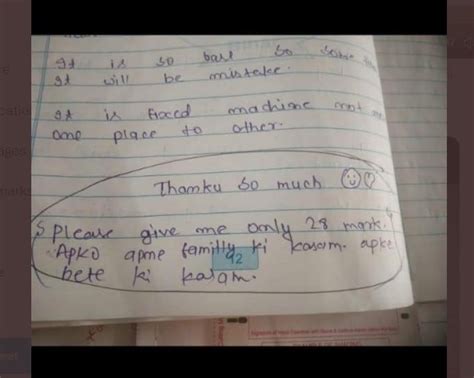 It is so
It will be mistake.
It is fixed machine not
one place to other.
Thanku so much
Please give me only 28 mark.
Apko apne familly ki kasam. apke
bete ki kasam.
92